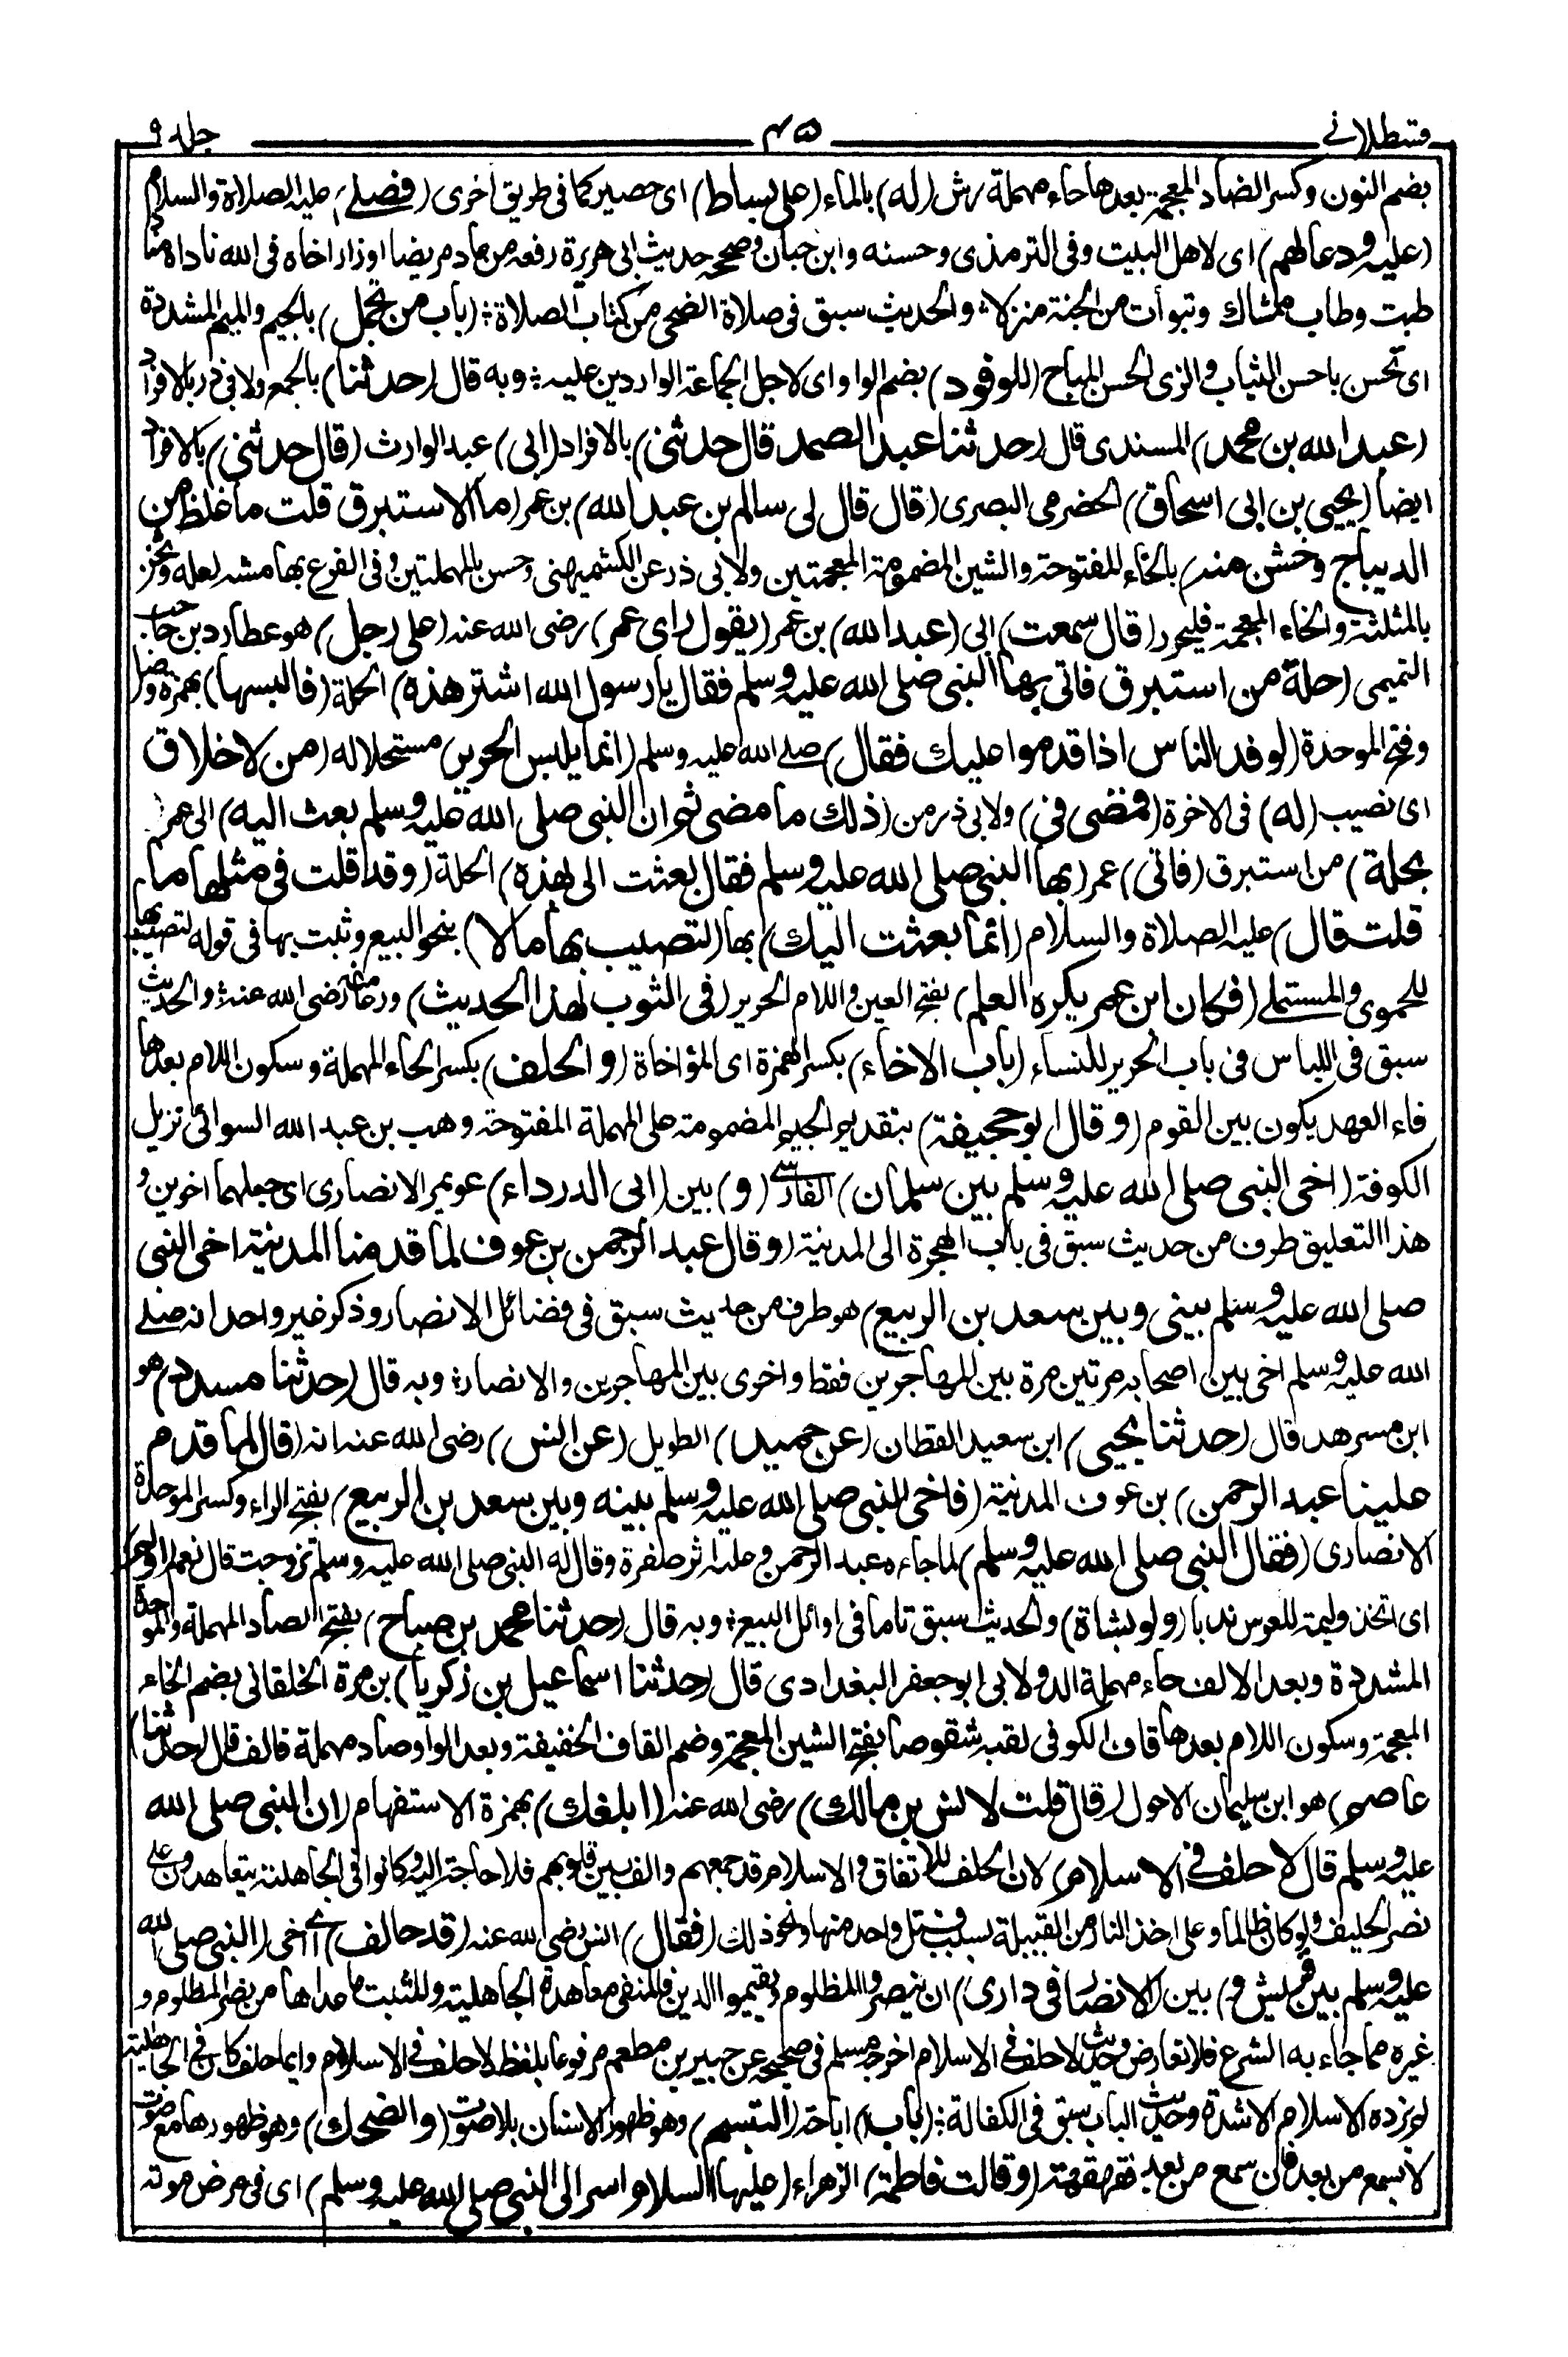 قسطلانے ٤٥ جلد ٩
بضم النون وكسر الضاد المعجمة بعدها حاء مهملة رش (له) بالماء (على بساط) اى حصير كما فى طريق اخرى (فصلى) عليه الصلاة والسلام
(عليه ودعا لهم) اى لاهل البيت وفى الترمذى وحسنه وابن حبان وصححه حديث ابى هريرة رفعه من عاد مريضا او زار اخاه فى الله ناداه مناد
طبت وطاب ممشاك وتبوأت من الجنة منزلا والحديث سبق فى صلاة الضحى من كتاب الصلاة (باب من تجمل) بالجيم والميم المشددة
اى تحسن باحسن الثياب والزى الحسن المباح (للوفود) بضم الواو اى لاجل الجماعة الواردين عليه وبه قال (حدثنا) بالجمع ولابى ذر بالافراد
(عبد الله بن محمد) المسندى قال (حدثنا عبد الصمد قال حدثنى) بالافراد (ابى) عبد الوارث (قال حدثنى) بالافراد
ايضا (يحيى بن ابى اسحاق) الحضرمى البصرى (قال قال لى سالم بن عبد الله) بن عمر (ما الاستبرق قلت ما غلظ من
الديباج وخشن منه) بالخاء المفتوحة والشين المضمومة المعجمتين ولابى ذر عن الكشميهنى وحسن بالمهملتين وفى الفرع بها مشه لعله وثخن
بالمثلثة والخاء المعجمة فليحرر (قال سمعت) ابى (عبد الله) بن عمر (يقول راى عمر) رضى الله عنه (على رجل) هو عطارد بن حاجب
التميمى (حلة من استبرق فاتى بها النبى صلى الله عليه وسلم فقال يا رسول الله اشتر هذه) الحلة (فالبسها) بهمزة وصل
وفتح الموحدة (لوفد الناس اذا قدموا عليك فقال) صلے الله عليه وسلم (انما يلبس الحرير) مستحلا له (من لا خلاق
اى نصيب (له) فى الاخرة (فمضى فى) ولابى ذر من (ذلك ما مضى ثم ان النبى صلى الله عليه وسلم بعث اليه) الى عمر
بحلة) من استبرق (فاتى) عمر (بها النبى صلى الله عليه وسلم فقال بعثت الى بهذه) الحلة (وقد قلت فى مثلها ما
قلت قال) عليه الصلاة والسلام (انما بعثت اليك) بها (لتصيب بها مالا) بنحو البيع وثبت بها فى قوله لتصيب بها
للحموى والمستملے (فكان ابن عمر يكره العلم) بفتح العين واللام الحرير (فى الثوب لهذا الحديث) ورعا منه رضى الله عنه والحديث
سبق فى اللباس فى باب الحرير للنساء (باب الاخاء) بكسر الهمزة اى المؤاخاة (والحلف) بكسر الحاء المهملة وسكون اللام بعدها
فاء العهد يكون بين القوم (وقال ابو جحيفة) بتقديم الجيم المضمومة على المهملة المفتوحة وهب بن عبد الله السوائى نزيل
الكوفة (اخى النبى صلى الله عليه وسلم بين سلمان) الفارسى (و) بين (ابى الدرداء) عويمر الانصارى اى جعلهما اخوين و
هذا التعليق طرف من حديث سبق فى باب الهجرة الى المدينة (وقال عبد الرحمن بن عوف لما قدمنا المدينة اخى النبى
صلى الله عليه وسلم بينى وبين سعد بن الربيع) هو طرف من حديث سبق فى فضائل الانصار وذكر غير واحد انه صلے
الله عليه وسلم اخى بين اصحابه مرتين مرة بين المهاجرين فقط واخرى بين المهاجرين والانصار وبه قال (حدثنا مسدد) هو
ابن مسرهد قال (حدثنا يحيى) ابن سعيد القطان (عن حميد) الطويل (عن انس) رضى الله عنه انه (قال لما قدم
علينا عبد الرحمن) بن عوف المدينة (فاخى النبى صلى الله عليه وسلم بينه وبين سعد بن الربيع) بفتح الراء وكسر الموحدة
الانصارى (فقال النبى صلى الله عليه وسلم) لما جاءه عبد الرحمن وعليه اثر صفرة وقال له النبى صلى الله عليه وسلم تزوجت قال نعم (اولم)
اى اتخذ وليمة للعرس ندبا (ولو بشاة) والحديث سبق تاما فى اوائل البيع وبه قال (حدثنا محمد بن صباح) بفتح الصاد المهملة والموحدة
المشددة وبعد الالف حاء مهملة الدولابى ابو جعفر البغدادى قال (حدثنا اسماعيل بن زكريا) بن مرة الخلقانى بضم الخاء
المعجمة وسكون اللام بعدها قاف الكوفى لقبه شقوصا بفتح الشين المعجمة وضم القاف الخفيفة وبعد الواو صاد مهملة فالف قال (حدثنا)
عاصم) هو ابن سليمان الاحول (قال قلت لانس بن مالك) رضى الله عنه (ابلغك) بهمزة الاستفهام (ان النبى صلى الله
عليه وسلم قال لا حلف فى الاسلام) لان الحلف للاتفاق والاسلام قد جمعهم والف بين قلوبهم فلا حاجة اليه وكانوا فى الجاهلية يتعاهدون على
نصر الحليف ولو كان ظالما وعلى اخذ الثار من القبيلة بسبب قتل واحد منها ونحو ذلك (فقال) انس رضى الله عنه (قد حالف) اى اخى (النبى صلى الله
عليه وسلم بين قريش و) بين (الانصار فى دارى) ان ينصروا المظلوم ويقيموا الدين فالمنفى معاهدة الجاهلية والمثبت ما عداها من نصر المظلوم و
غيره مما جاء به الشرع فلا تعارض وحديث لا حلف فى الاسلام اخرجه مسلم فى صحيحه عن جبير بن مطعم مرفوعا بلفظ لا حلف فى الاسلام وايما حلف كان فى الجاهلية
لم يزده الاسلام الا شدة وحديث الباب سبق فى الكفالة (باب) اباحة (التبسم) وهو ظهور الاسنان بلا صوت (والضحك) وهو ظهورها مع صوت
لا يسمع من بعد فان سمع من بعد فقهقهة (وقالت فاطمة) الزهراء (عليها السلام اسر الى النبى صلى الله عليه وسلم) اى فى مرض موته